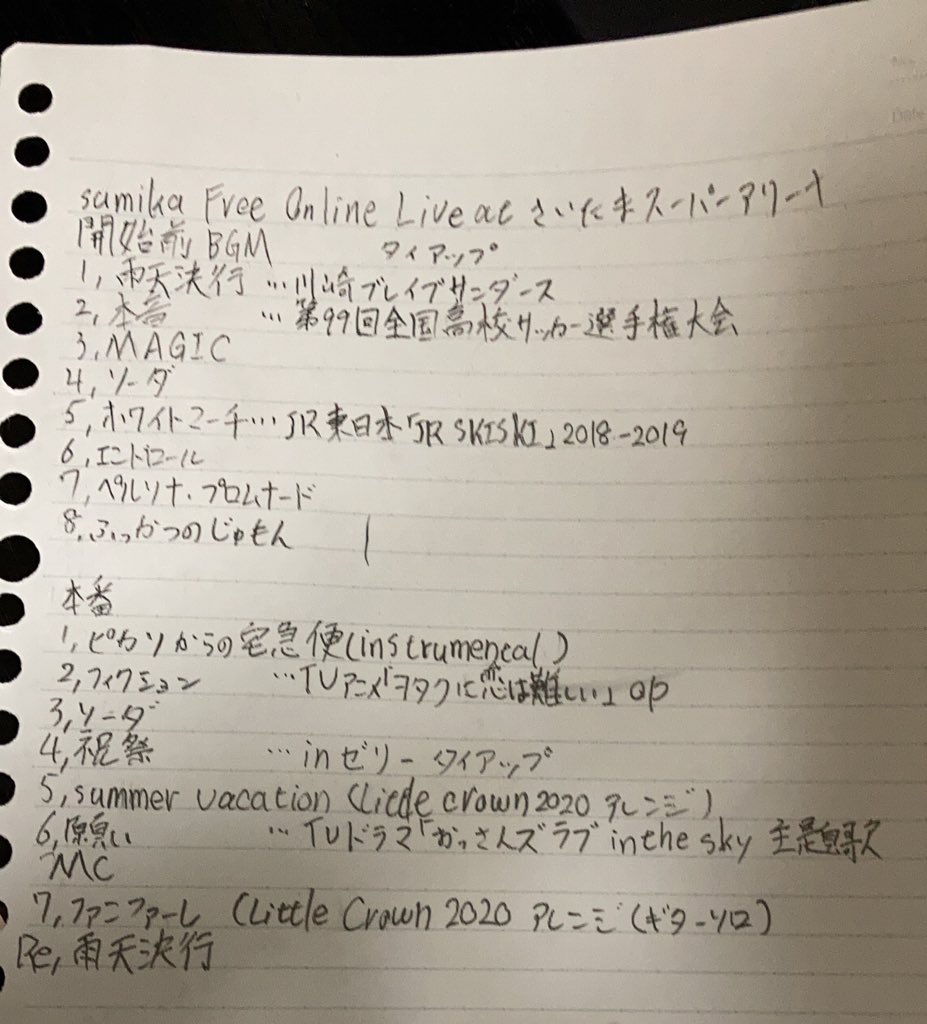 sumika Free Online Live at さいたまスーパーアリーナ
開始前BGM タイアップ
1,雨天決行 …川崎ブレイブサンダース
2,本音 …第99回全国高校サッカー選手権大会
3,MAGIC
4,ソーダ
5,ホワイトマーチ…JR東日本「JR SKISKI」2018-2019
6,エンドロール
7,ペルソナ・プロムナード
8.ふっかつのじゅもん
本番
1,ピカソからの宅急便(instrumental)
2,フィクション …TVアニメ「ヲタクに恋は難しい」op
3,ソーダ
4,祝祭 …inゼリータイアップ
5,summer vacation (Little crown 2020 アレンジ)
6,願い …TVドラマ「おっさんズラブ in the sky 主題歌
MC
7,ファンファーレ (Little Crown 2020 アレンジ(ギターソロ)
Re,雨天決行